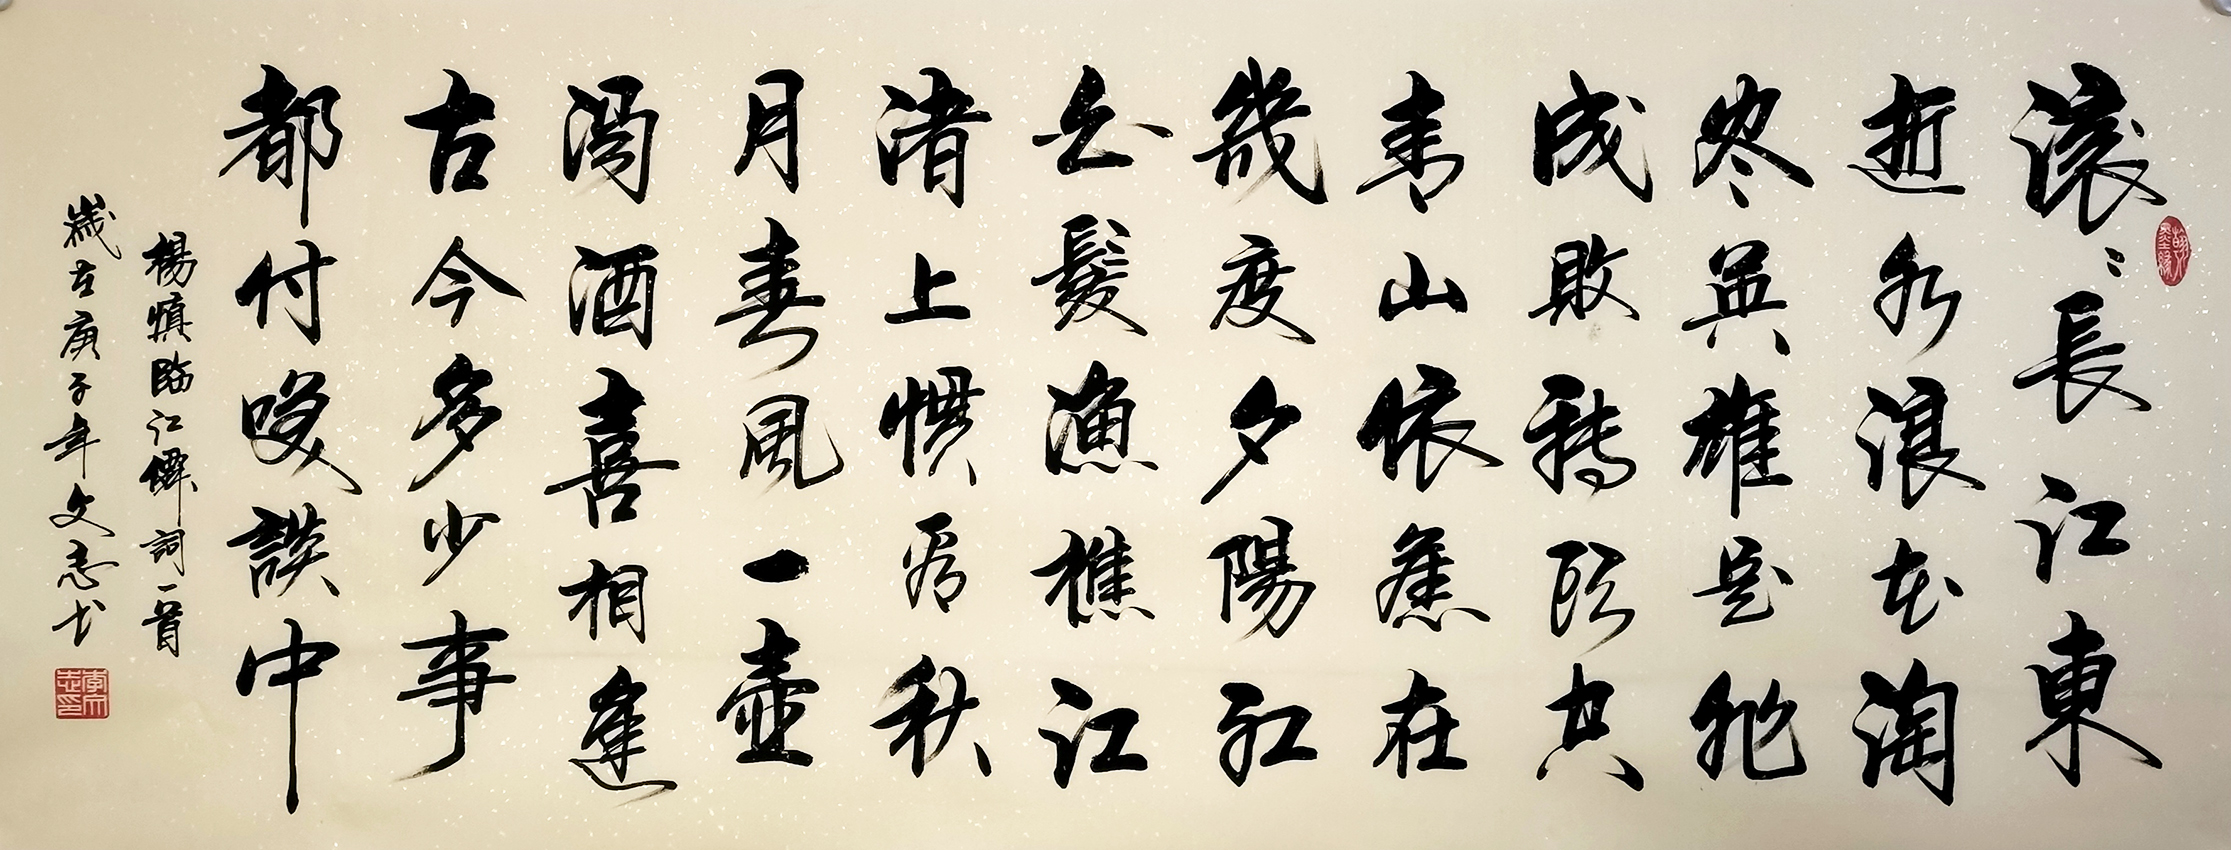 滚〻長江東
逝水浪花淘
尽英雄是非
成敗轉頭空
青山依舊在
幾度夕陽紅
白髮漁樵江
渚上慣看秋
月春風一壺
濁酒喜相逢
古今多少事
都付咲談中
楊慎臨江僊詞一首
歲在庚子年文志书
李文志印